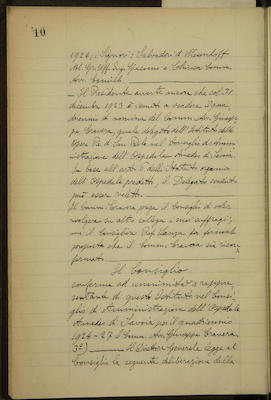 10
1924, i Signori: Salvadori di Wiesenhoff
Nob. Gr. Uff. Ing. Giacomo e Chiesa Comm.
Avv. Camillo.
- Il Presidente avverte ancora che col 31
dicembre 1923 è venuto a scadere il quadriennio di nomina del Comm. Avv. Giuseppe Cravera, quale delegato dell'Istituto delle
Opere Pie di San Paolo nel Consiglio di Amministrazione dell'Ospedale Amedeo di Savoia.
In base all'art. 6 dello Statuto organico
dell'Ospedale predetto, il Delegato scaduto
può essere rieletto.
Il Comm. Cravera prega il Consiglio di voler
rivolgere su altro collega i suoi suffragi,
ma il Consigliere formale
proposta che il Comm. Cravera sia riconfermato.
Il Consiglio
conferma ad unanimità a rappresentante di questo Istituto nel Consiglio di Amministrazione dell'Ospedale
Amedeo di Savoia per il quadriennio
1924-27 il Comm. Avv. Giuseppe Cravera.
3°) Il Direttore Generale legge al
Consiglio la seguente deliberazione della